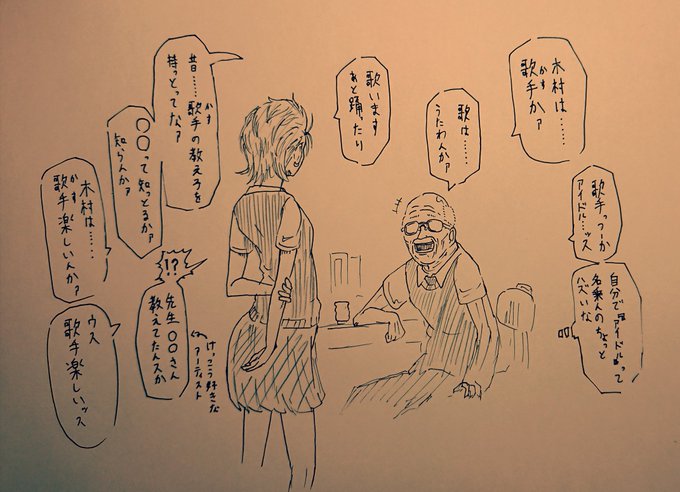 木村は……
かす
歌手か?
歌手っつーか
アイドル…ッス
自分で『アイドル』って
名乗んのちょっと
ハズいな
歌は……
うたわんか?
歌います
あと踊ったり
昔……
かす
歌手の教え子を
持っとってな?
〇〇って知っとるか?
知らんか?
!?
先生〇〇さん
教えてたんスか
けっこう好きな
アーティスト
木村は……
かす
歌手楽しいんか?
ウス
歌手楽しいッス